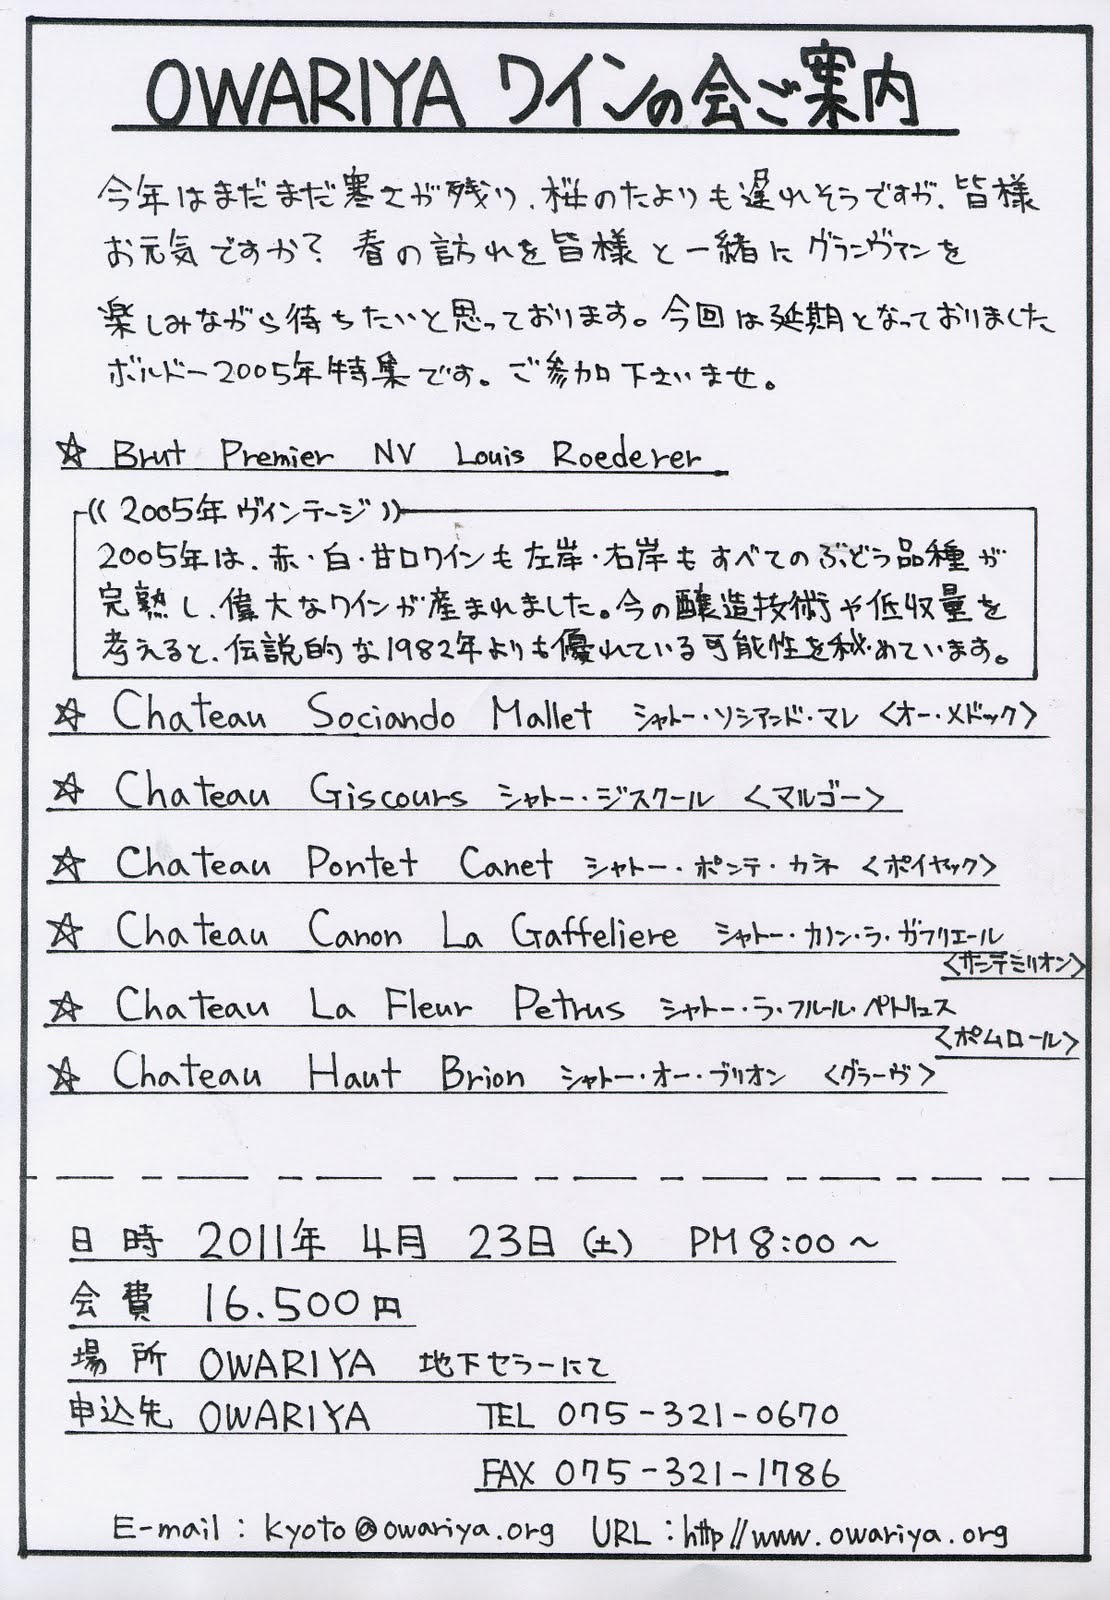 OWARIYA ワインの会ご案内
今年はまだまだ寒さが残り、桜のたよりも遅れそうですが、皆様
お元気ですか？ 春の訪れを皆様と一緒にグランヴァンを
楽しみながら待ちたいと思っております。今回は延期となっておりました
ボルドー2005年特集です。ご参加下さいませ。
☆ Brut Premier NV Louis Roederer
《 2005年ヴィンテージ 》
2005年は、赤・白・甘口ワインも左岸・右岸もすべてのぶどう品種が
完熟し、偉大なワインが産まれました。今の醸造技術や低収量を
考えると、伝説的な1982年よりも優れている可能性を秘めています。
☆ Chateau Sociando Mallet シャトー・ソシアンド・マレ <オー・メドック>
☆ Chateau Giscours シャトー・ジスクール <マルゴー>
☆ Chateau Pontet Canet シャトー・ポンテ・カネ <ポイヤック>
☆ Chateau Canon La Gaffeliere シャトー・カノン・ラ・ガフリエール
<サンテミリオン>
☆ Chateau La Fleur Petrus シャトー・ラ・フルール・ペトリュス
<ポムロール>
☆ Chateau Haut Brion シャトー・オー・ブリオン <グラーヴ>
日時 2011年 4月 23日(土) PM 8:00～
会費 16.500円
場所 OWARIYA 地下セラーにて
申込先 OWARIYA TEL 075-321-0670
FAX 075-321-1786
E-mail : kyoto@owariya.org URL : http//www.owariya.org